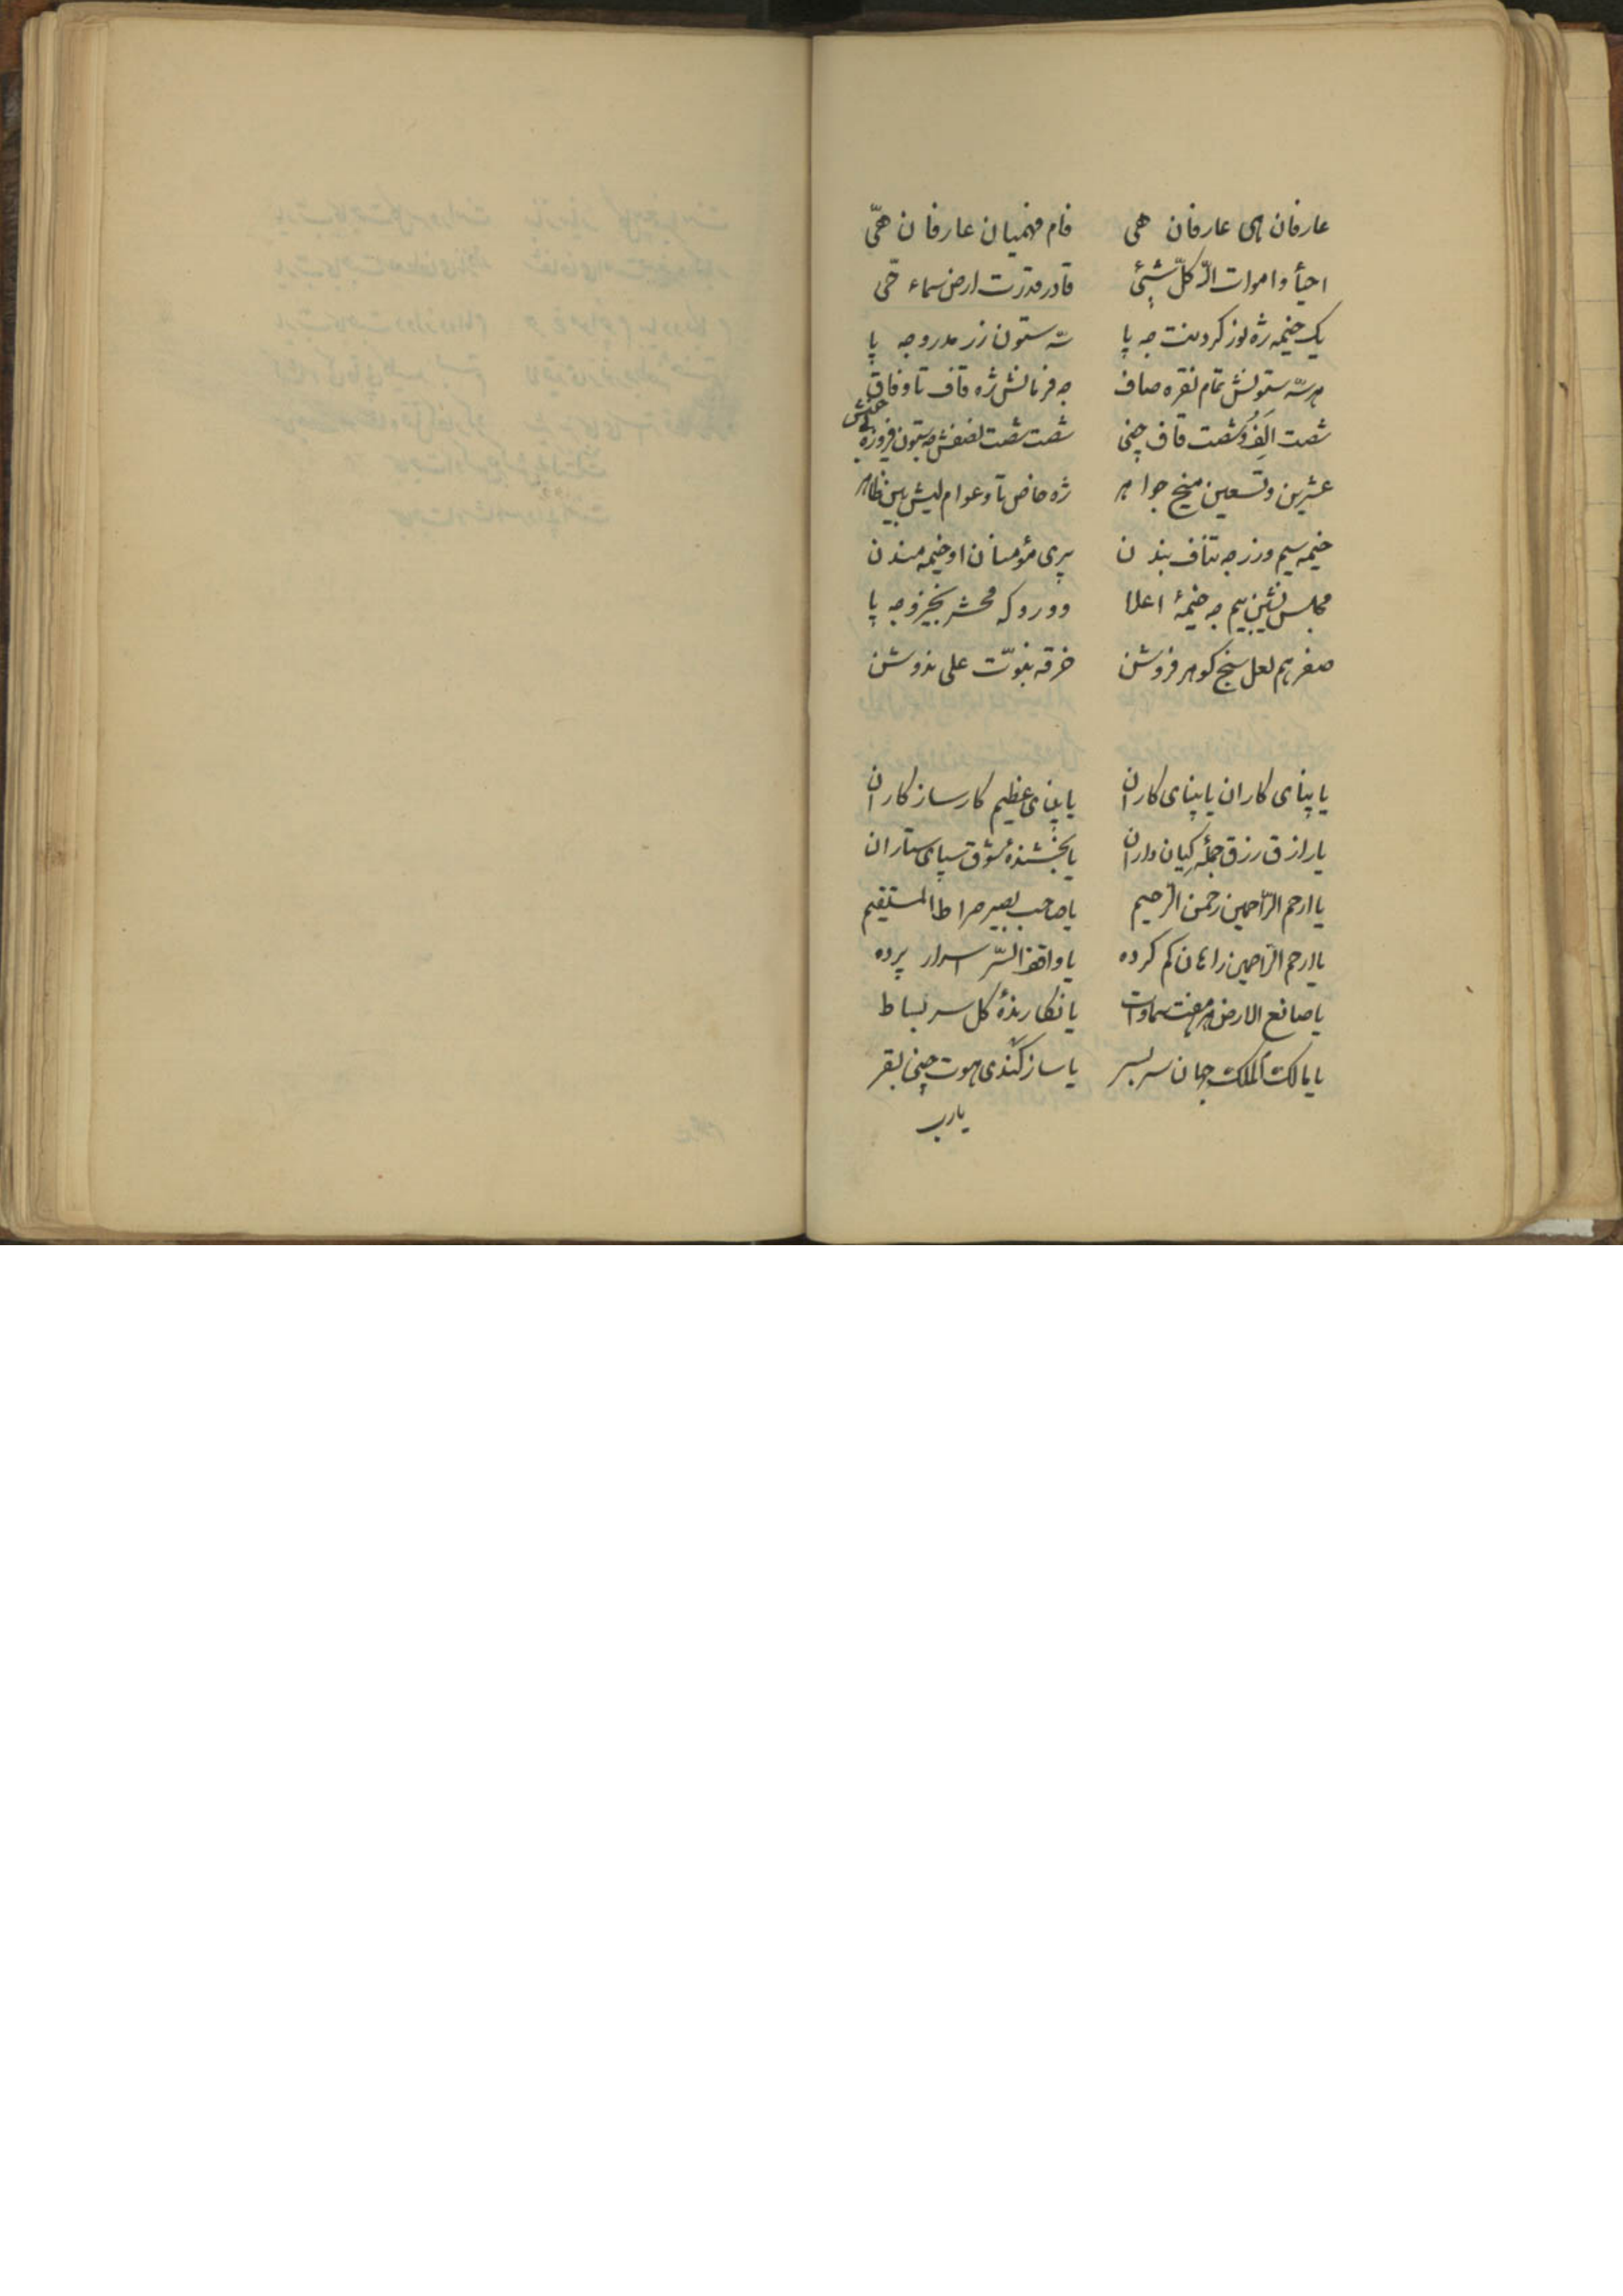 عارفان های عارفان هی فام فهمیان عارفان هیّ
احیأ و اموات الّه کلّ شیٔ قادر قدرت ارض سماء حّی
یک خیمه ژه نور کردینت جه پا سّه ستون زر مدرو جه پا
هر سّه ستونش تمام نقره صاف جه فرمانش ژه قاف تا و قاف
شصت اَلِفُ و شصت قاف چنی شصت شصت لفضش چه ستون فیروزه
عشرین و تسعین میخ جواهر ژه خاص تا و عوام لیش بین ظاهر
خیمه سیم و زر جه تناف بندن پری مؤمنان او خیمه مندن
مجلس نشین بیم جه خیمهٔ اعلا و و رو که محشر بخیزو جه پا
صفر هم لعل سنج کوهر فروشن خرقه نبوّت علی ندوشن
یا پنای کاران یا پنای کاران یا پنای عظیم کارساز کاران
یا رازق رزق جملٔه کیان داران یا بخشندهٔ شوق سپای ستاران
یا ارحم الرّاحمین رحمن الرّحیم یا صاحب بصیر صراط المستقیم
یا ارحم الرّاحمین راهان کم کرده یا واقف السّر اسرار پرده
یا صانع الارض هر هفت سماوات یا نکارندهٔ کل سر بساط
یا مالک الملک جهان سر بسر یا ساز کندی هوت چنی بقر
یارب